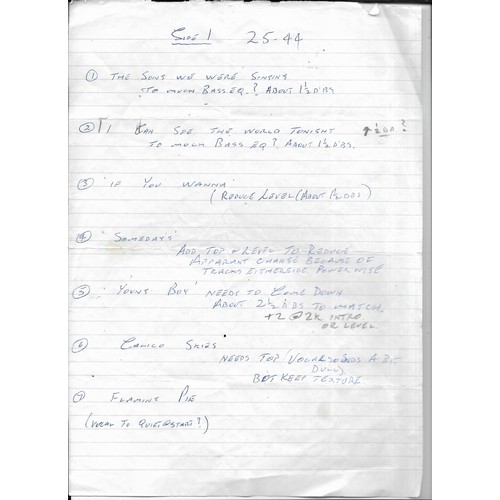 SIDE 1 25-44
① THE SONG WE WERE SINGING
TO MUCH BASS EQ.? ABOUT 1½ D'BS
② I CAN SEE THE WORLD TONIGHT ↑ ½ DB ?
TO MUCH BASS EQ? ABOUT 1½ D'BS.
③ 'IF YOU WANNA'
(REDUCE LEVEL (ABOUT DBS)
④ 'SOMEDAYS'
ADD TOP & LEVEL TO REDUCE
APPARANT CHANGE BECAUSE OF
TRACKS EITHERSIDE POWERWISE
⑤ 'YOUNG BOY' NEEDS TO COME DOWN
ABOUT 2½ D'BS TO MATCH.
+2 @ 2K INTRO
OR LEVEL
⑥ CALICO SKIES
NEEDS TOP (VOCAL SOUNDS A BIT
DULL)
BUT KEEP TEXTURE
⑦ FLAMING PIE
(VOCAL TO QUIET @ START?)